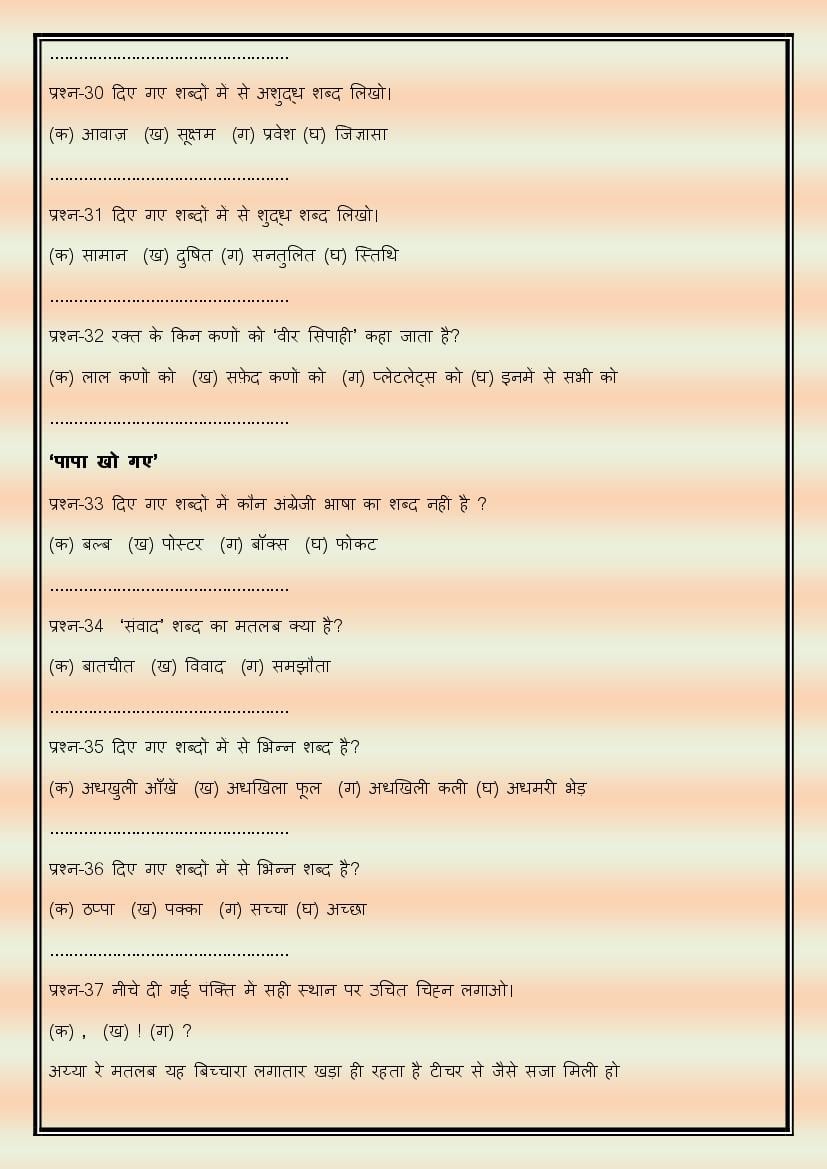 ..................................................
प्रश्न-30 दिए गए शब्दों में से अशुद्ध शब्द लिखो।
(क) आवाज़ (ख) सूक्षम (ग) प्रवेश (घ) जिज्ञासा
..................................................
प्रश्न-31 दिए गए शब्दों में से शुद्ध शब्द लिखो।
(क) सामान (ख) दुषित (ग) सनतुलित (घ) स्तिथि
..................................................
प्रश्न-32 रक्त के किन कणों को ‘वीर सिपाही’ कहा जाता है?
(क) लाल कणों को (ख) सफ़ेद कणों को (ग) प्लेटलेट्स को (घ) इनमें से सभी को
..................................................
‘पापा खो गए’
प्रश्न-33 दिए गए शब्दों में कौन अंग्रेजी भाषा का शब्द नहीं है ?
(क) बल्ब (ख) पोस्टर (ग) बॉक्स (घ) फोकट
..................................................
प्रश्न-34 ‘संवाद’ शब्द का मतलब क्या है?
(क) बातचीत (ख) विवाद (ग) समझौता
..................................................
प्रश्न-35 दिए गए शब्दों में से भिन्न शब्द है?
(क) अधखुली आँखें (ख) अधखिला फूल (ग) अधखिली कली (घ) अधमरी भेड़
..................................................
प्रश्न-36 दिए गए शब्दों में से भिन्न शब्द है?
(क) ठप्पा (ख) पक्का (ग) सच्चा (घ) अच्छा
..................................................
प्रश्न-37 नीचे दी गई पंक्ति में सही स्थान पर उचित चिह्न लगाओ।
(क) , (ख) ! (ग) ?
अय्या रे मतलब यह बिच्चारा लगातार खड़ा ही रहता है टीचर से जैसे सजा मिली हो